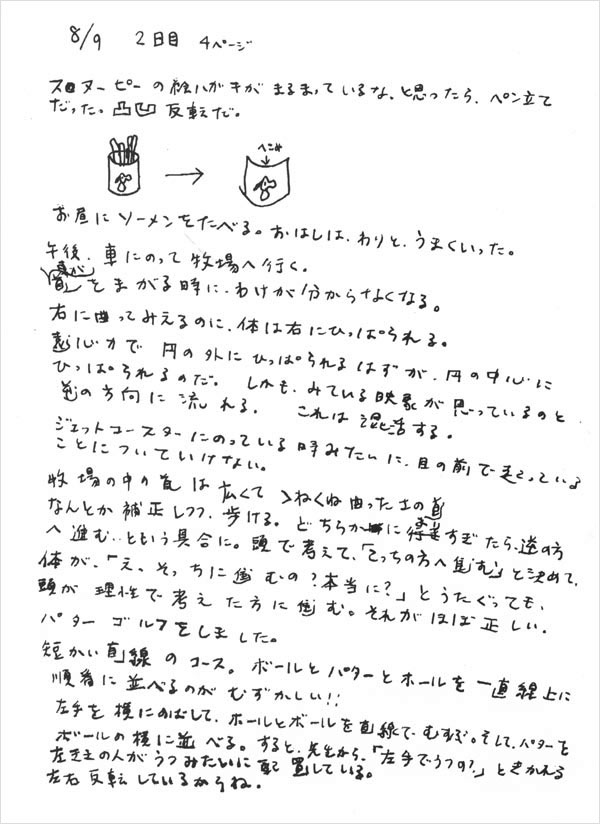 8/9 2日目 4ページ
スヌーピーの絵ハガキがまるまっているな、と思ったら、ペン立て
だった。凸凹 反転だ。
へこみ
お昼にソーメンをたべる。おはしは、わりと、うまくいった。
午後、車にのって牧場へ行く。
車が
道をまがる時に、わけが分からなくなる。
右に曲ってみえるのに、体は右にひっぱられる。
遠心力で 円の外にひっぱられるはずが、円の中心に
ひっぱられるのだ。 しかも、みている映象が思っているのと
逆の方向に流れる。 これは混活する。
ジェットコースターにのっている時みたいに、目の前で走っている
ことについていけない。
牧場の中の道は広くて くねくね曲った土の道
なんとか補正しつつ、歩ける。どちらかに すぎたら、逆の方
へ進む‥という具合に。頭で考えて、「こっちの方へ進む」と決めて、
体が、「え、そっちに進むの?本当に?」とうたぐっても、
頭が理性で考えた方に進む。それがほぼ正しい。
パターゴルフをしました。
短かい直線のコース。ボールとパターとホールを一直線上に
順番に並べるのがむずかしい!!
左手を横にのばして、ホールとボールを直線で、むすぶ。そして、パターを
ボールの横に並べる。すると、先生から、「左手でうつの?」ときかれる
左ききの人がうつみたいに配置している。
左右反転しているからね。